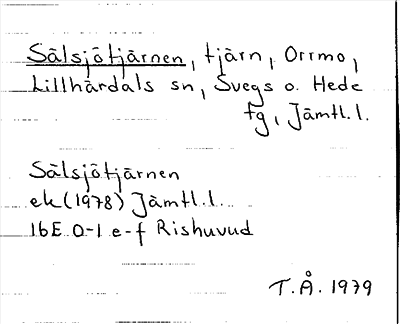 Sälsjötjärnen, tjärn, Orrmo,
Lillhärdals sn, Svegs o. Hede
tg, Jämtl. l.
Sälsjötjärnen
ek (1978) Jämtl. l.
16E 0-1 e-f Rishuvud
T.Å. 1979